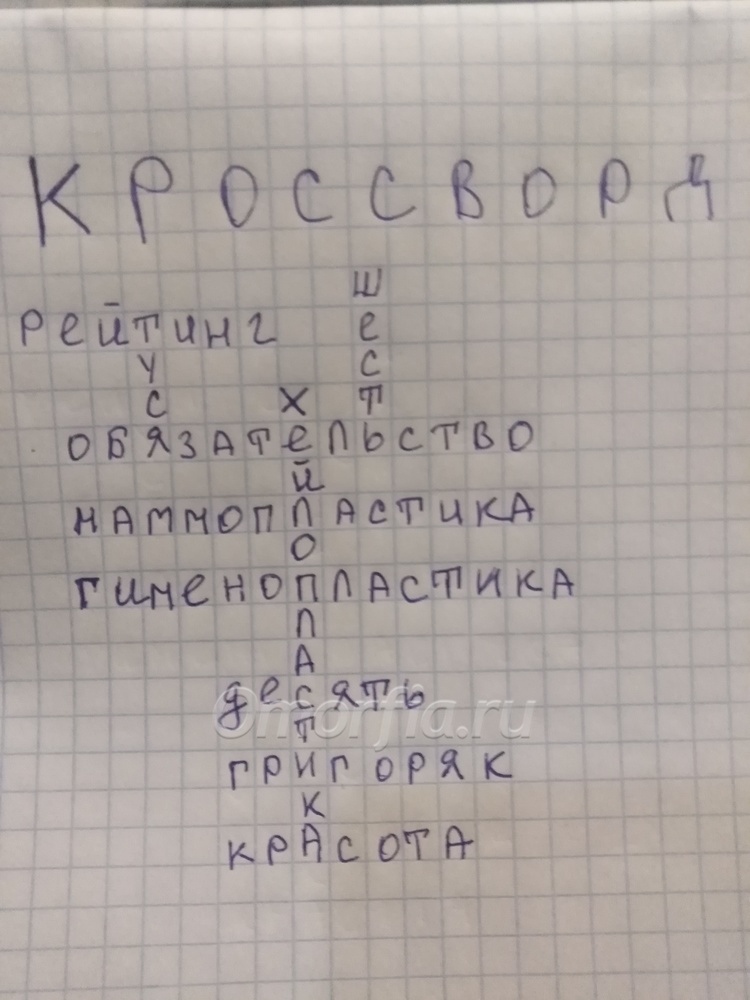 КРОССВОРД
ШЕСТЬ
РЕЙТИНГ
ТУСЯ
ХЕЙЛОПЛАСТИКА
ОБЯЗАТЕЛЬСТВО
МАММОПЛАСТИКА
ГИМЕНОПЛАСТИКА
ДЕСЯТЬ
Omorfia.ru
ГРИГОРЯК
КРАСОТА